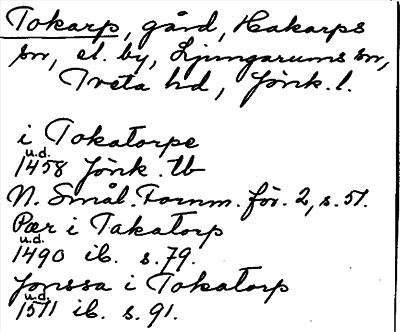 Tokarp, gård, Hakarps
sn, el. by, Ljungarums sn,
Tveta hd, Jönk. l.
i Tokatorpe
u.d.
1458 Jönk. tb
N. Smål. Fornm. för. 2, s. 51.
Pær i Takatorp
u.d.
1490 ib. s. 79.
Jonssa i Tokatorp
u.d.
1511 ib. s. 91.